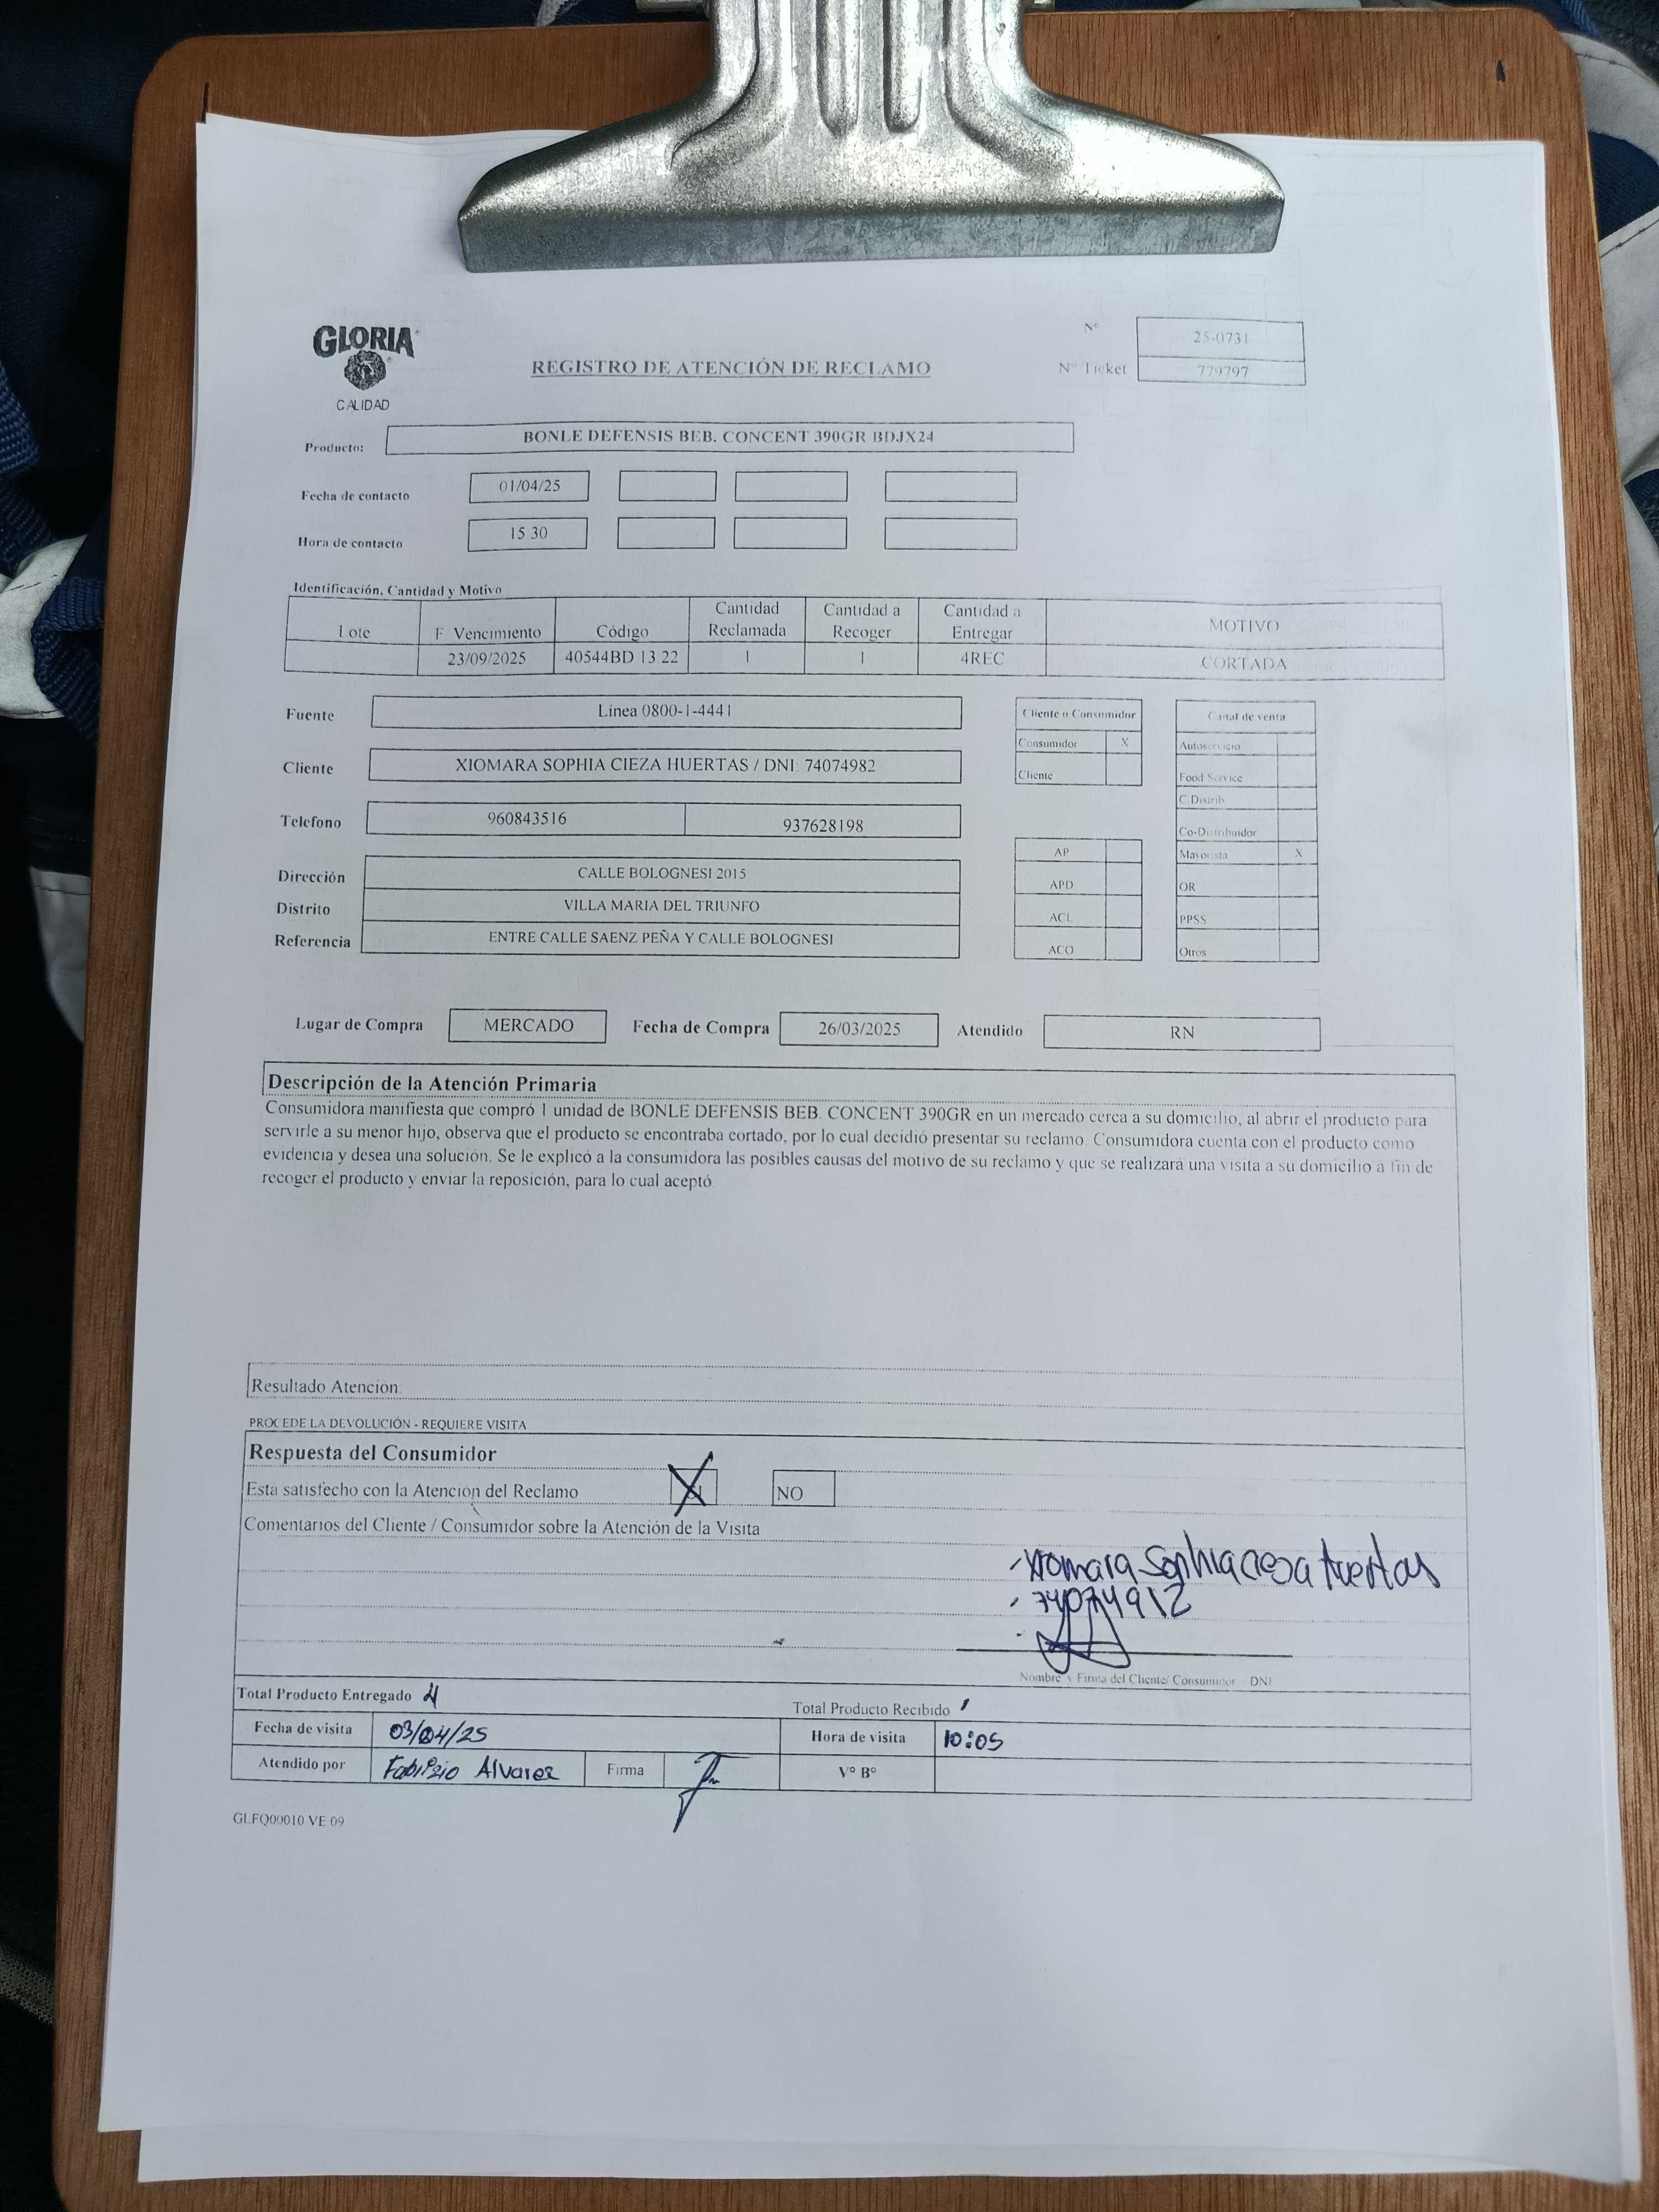 GLORIA
CALIDAD
REGISTRO DE ATENCIÓN DE RECLAMO
Nº 25-0731
Nº Ticket 779797
Producto: BONLE DEFENSIS BEB. CONCENT 390GR BDJX24
Fecha de contacto 01/04/25
Hora de contacto 15:30
Identificación, Cantidad y Motivo
Lote F. Vencimiento Código Cantidad Reclamada Cantidad a Recoger Cantidad a Entregar MOTIVO
23/09/2025 40544BD 13:22 1 1 4REC CORTADA
Fuente Linea 0800-1-4441
Cliente XIOMARA SOPHIA CIEZA HUERTAS / DNI: 74074982
Telefono 960843516 937628198
Dirección CALLE BOLOGNESI 2015
Distrito VILLA MARIA DEL TRIUNFO
Referencia ENTRE CALLE SAENZ PEÑA Y CALLE BOLOGNESI
Cliente o Consumidor
Consumidor X
Cliente
AP
APD
ACL
ACO
Canal de venta
Autoservicio
Food Service
C.Distrib
Co-Distribuidor
Mayorista X
OR
PPSS
Otros
Lugar de Compra MERCADO Fecha de Compra 26/03/2025 Atendido RN
Descripción de la Atención Primaria
Consumidora manifiesta que compró 1 unidad de BONLE DEFENSIS BEB. CONCENT 390GR en un mercado cerca a su domicilio, al abrir el producto para
servirle a su menor hijo, observa que el producto se encontraba cortado, por lo cual decidió presentar su reclamo. Consumidora cuenta con el producto como
evidencia y desea una solución. Se le explicó a la consumidora las posibles causas del motivo de su reclamo y que se realizará una visita a su domicilio a fin de
recoger el producto y enviar la reposición, para lo cual aceptó
Resultado Atención:
PROCEDE LA DEVOLUCIÓN - REQUIERE VISITA
Respuesta del Consumidor
Esta satisfecho con la Atención del Reclamo X NO
Comentarios del Cliente / Consumidor sobre la Atención de la Visita
Xiomara Sophia cieza Huertas
Nombre y Firma del Cliente/ Consumidor / DNI
Total Producto Entregado 4 Total Producto Recibido 1
Fecha de visita 03/04/25 Hora de visita 10:05
Atendido por Fabrizio Alvarez Firma Vº Bº
GLFQ00010 VE 09